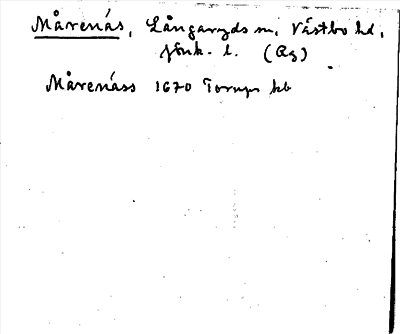 Mårenäs, Långaryds sn, Västbo hd,
Jönk. l. (Rg)
Mårenäss 1670 Torups kb